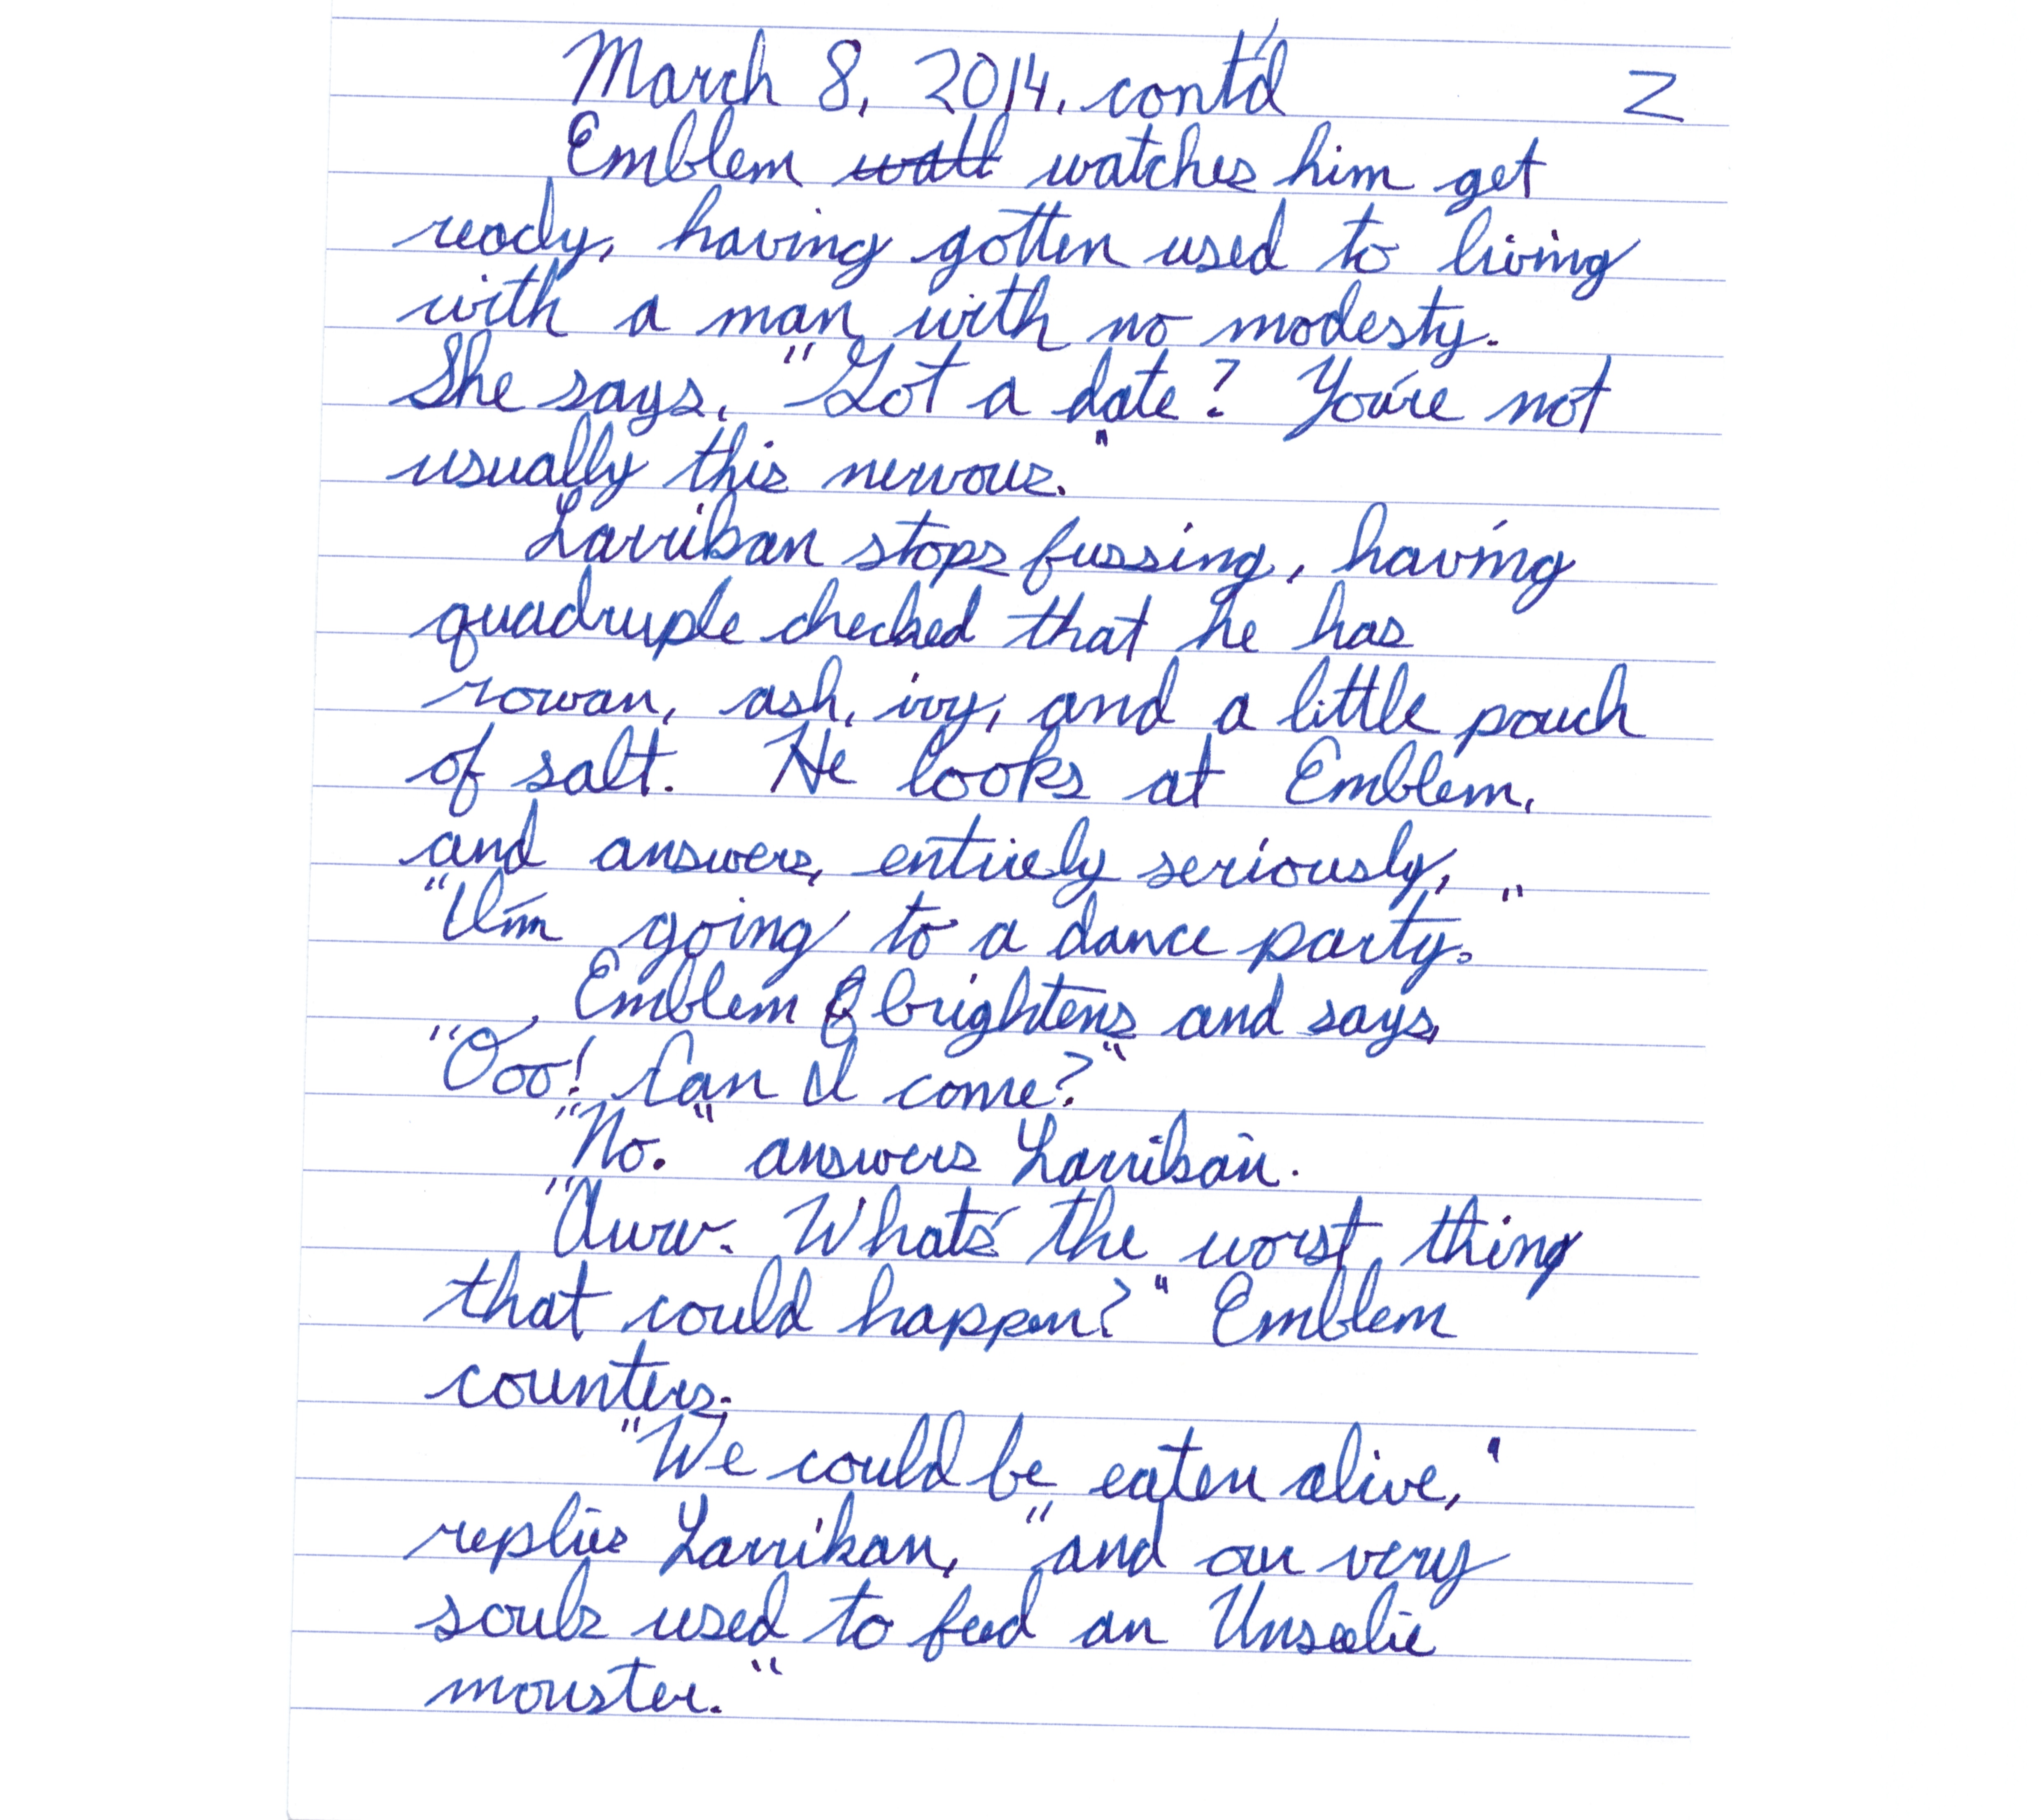 March 8, 2014, cont'd 2
Emblem watches him get
ready, having gotten used to living
with a man with no modesty.
She says, "Got a date? You're not
usually this nervous."
Larrikan stops fussing, having
quadruple checked that he has
rowan, ash, ivy, and a little pouch
of salt. He looks at Emblem,
and answers, entirely seriously,
"I'm going to a dance party."
Emblem brightens and says,
"Ooo! Can I come?"
"No." answers Larrikan.
"Aww. What's the worst thing
that could happen?" Emblem
counters.
"We could be eaten alive,"
replies Larrikan, "and our very
souls used to feed an Unseelie
monster."